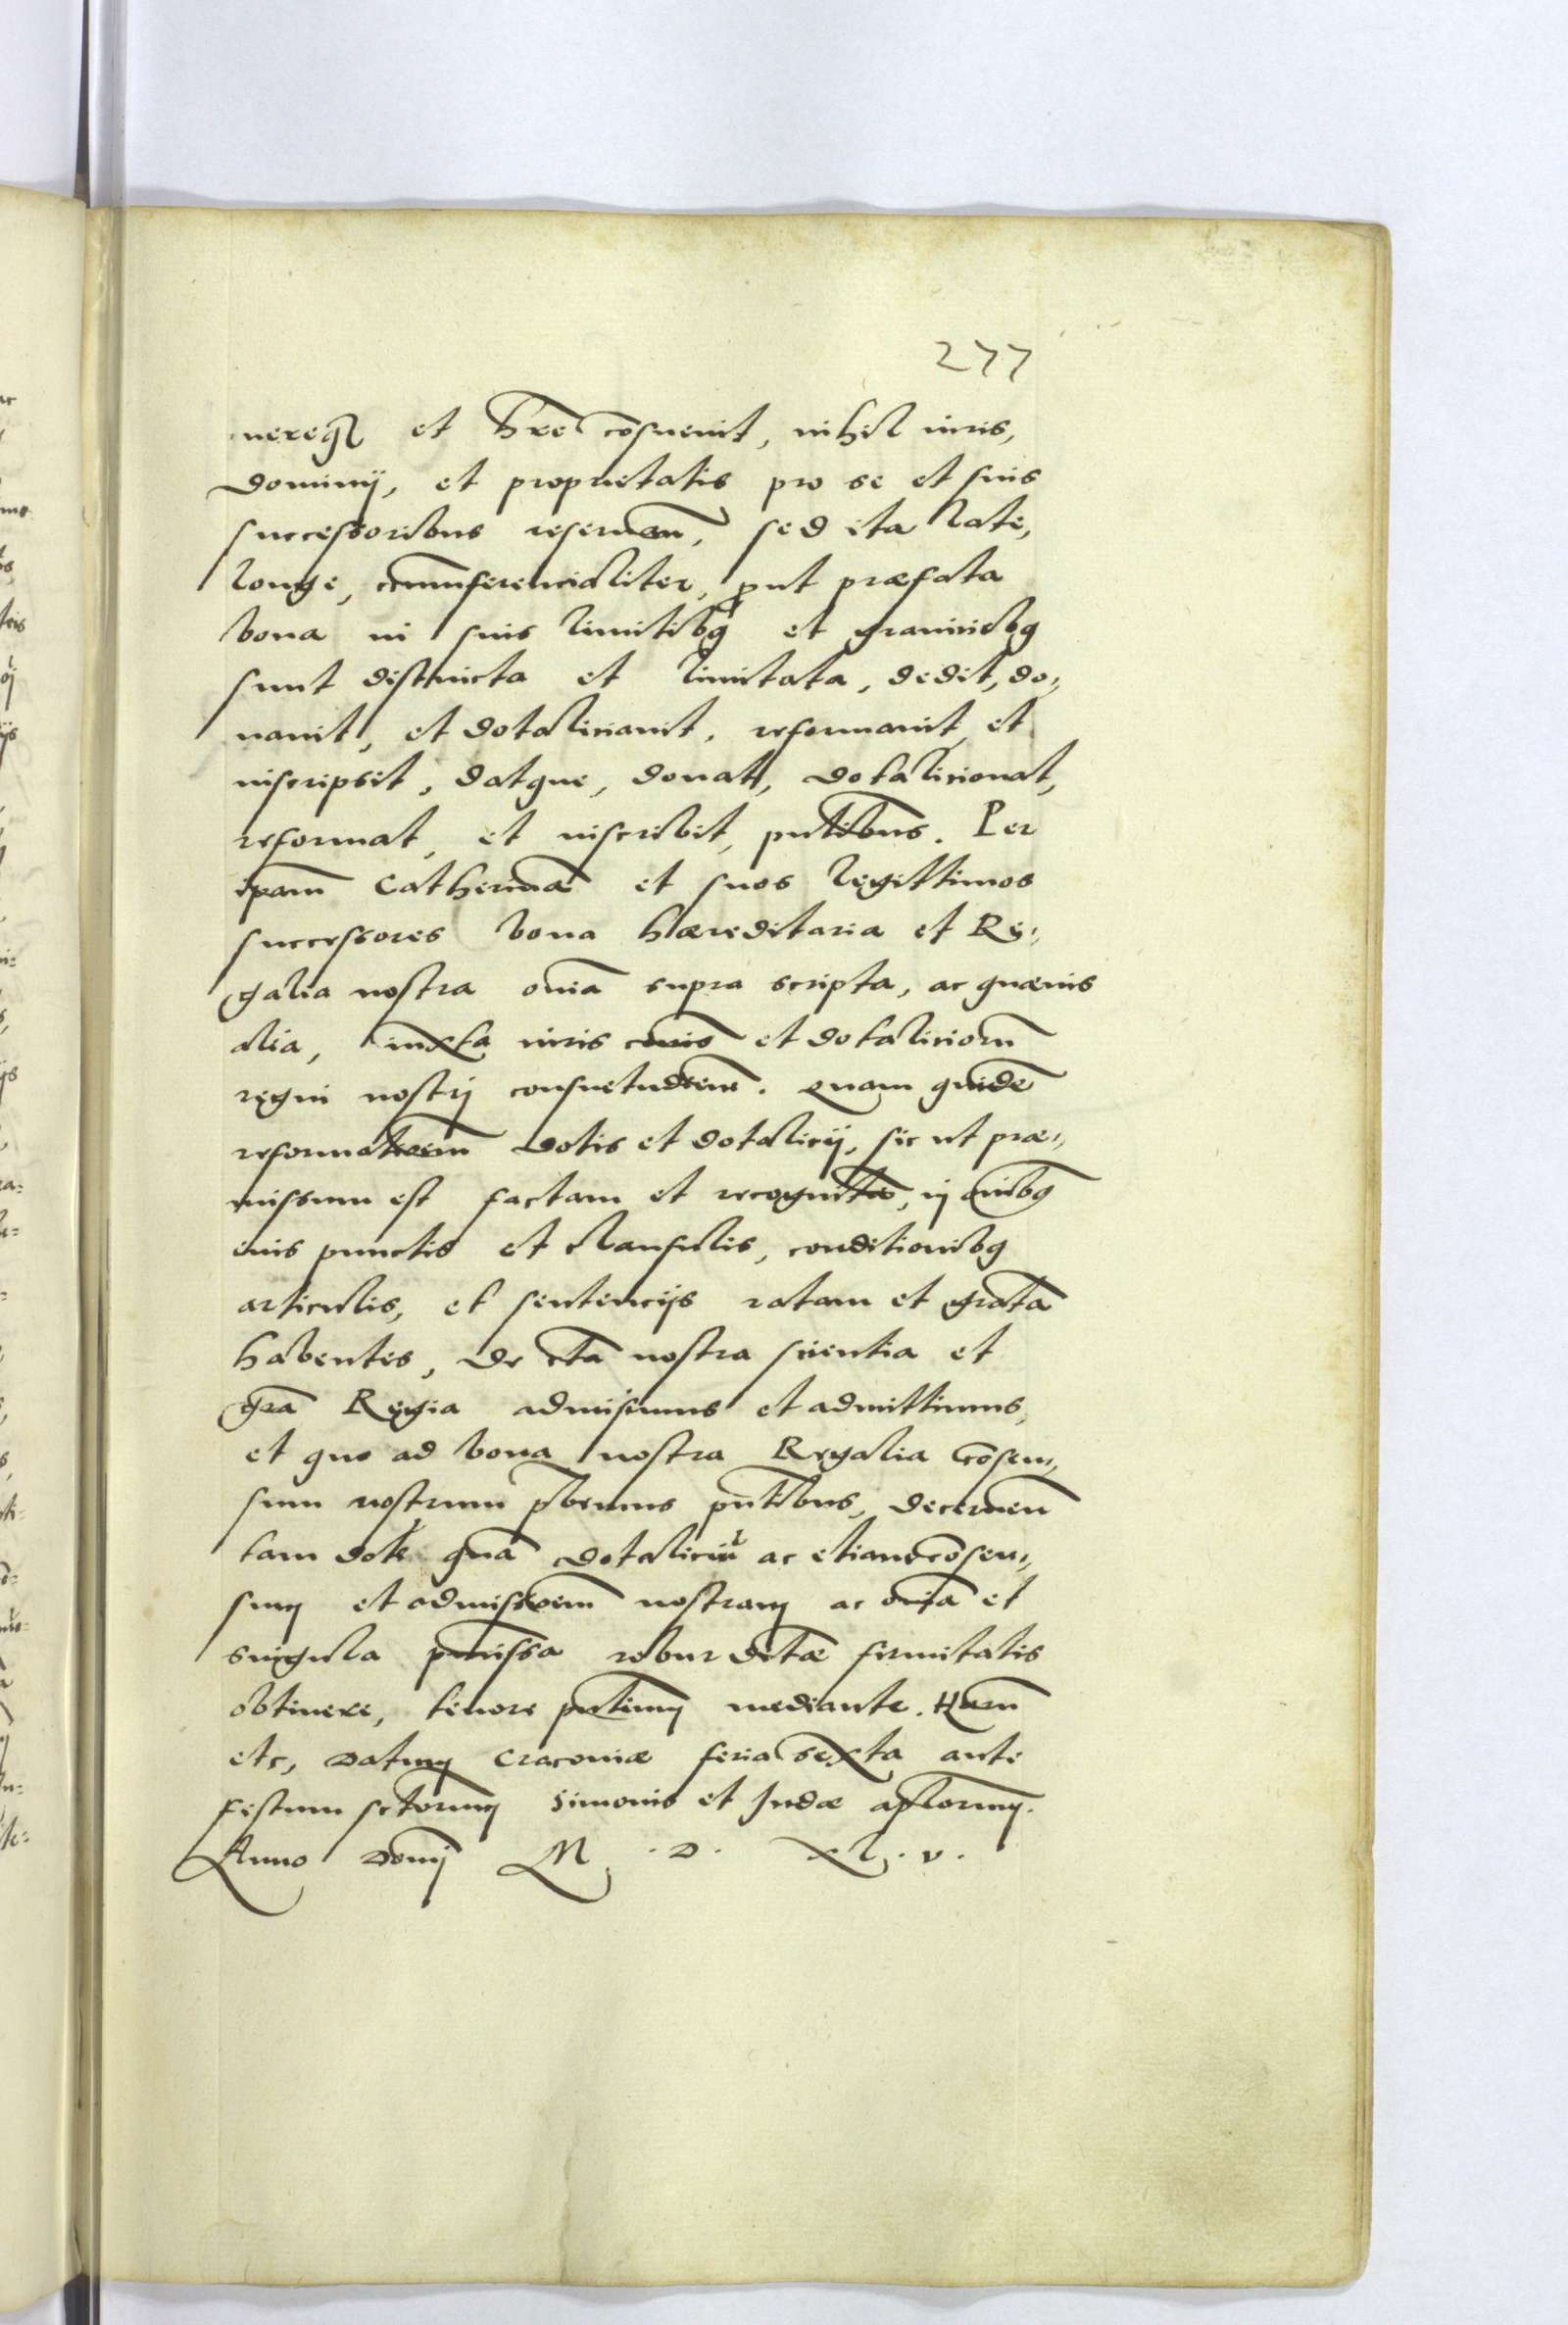 277
nereq₃ et h̄re cōsuevit, nihil iuris,
dominij, et proprietatis pro se et suis
successoribus reserueñ, sed ita late,
longe, circumferencialiter, ꝓut præfata
bona in suis limitibq et graniciebq
sunt distincta et limitata, dedit, do„
nauit, et dotaliciauit, reformauit et
inscripsit, datque, donat, dotalicionat,
reformat, et inscribit, pn̄tibus. Per
ip̄am Catherinā et suos legittimos
successores bona hæreditaria et Re„
galia nostra om̄ia supra scripta, ac quævis
alia, iuxta iuris cōīs et dotaliciorū
regni nostrj consuetudīem. Quam quidē
reformatōem dotis et dotalicij, sic ut præ„
missum est factam et recognitā, in om̄ibq
suis punctis et clausulis, conditionibq
articulis, et sentencijs ratam et gratā
habentes, de c̄ta nostra scientia et
gr̄a Regia admisimus et admittimus,
et quo ad bona nostra Regalia Cōsen„
sum nostrum p̄bemus pn̄tibus, decerneñ
tam dotē quā dotaliciū ac etiam cōsen„
sum et admissōem nostram ac om̄ia et
singula p̄missa robur debitæ firmitatis
obtinere, tenore pn̄tium mediante. Harū
etc, Datum Cracouiæ feria sexta ante
festum sctorum Simonis et Judæ apl̄orum.
Anno Dom̄j M . D . XL . v .